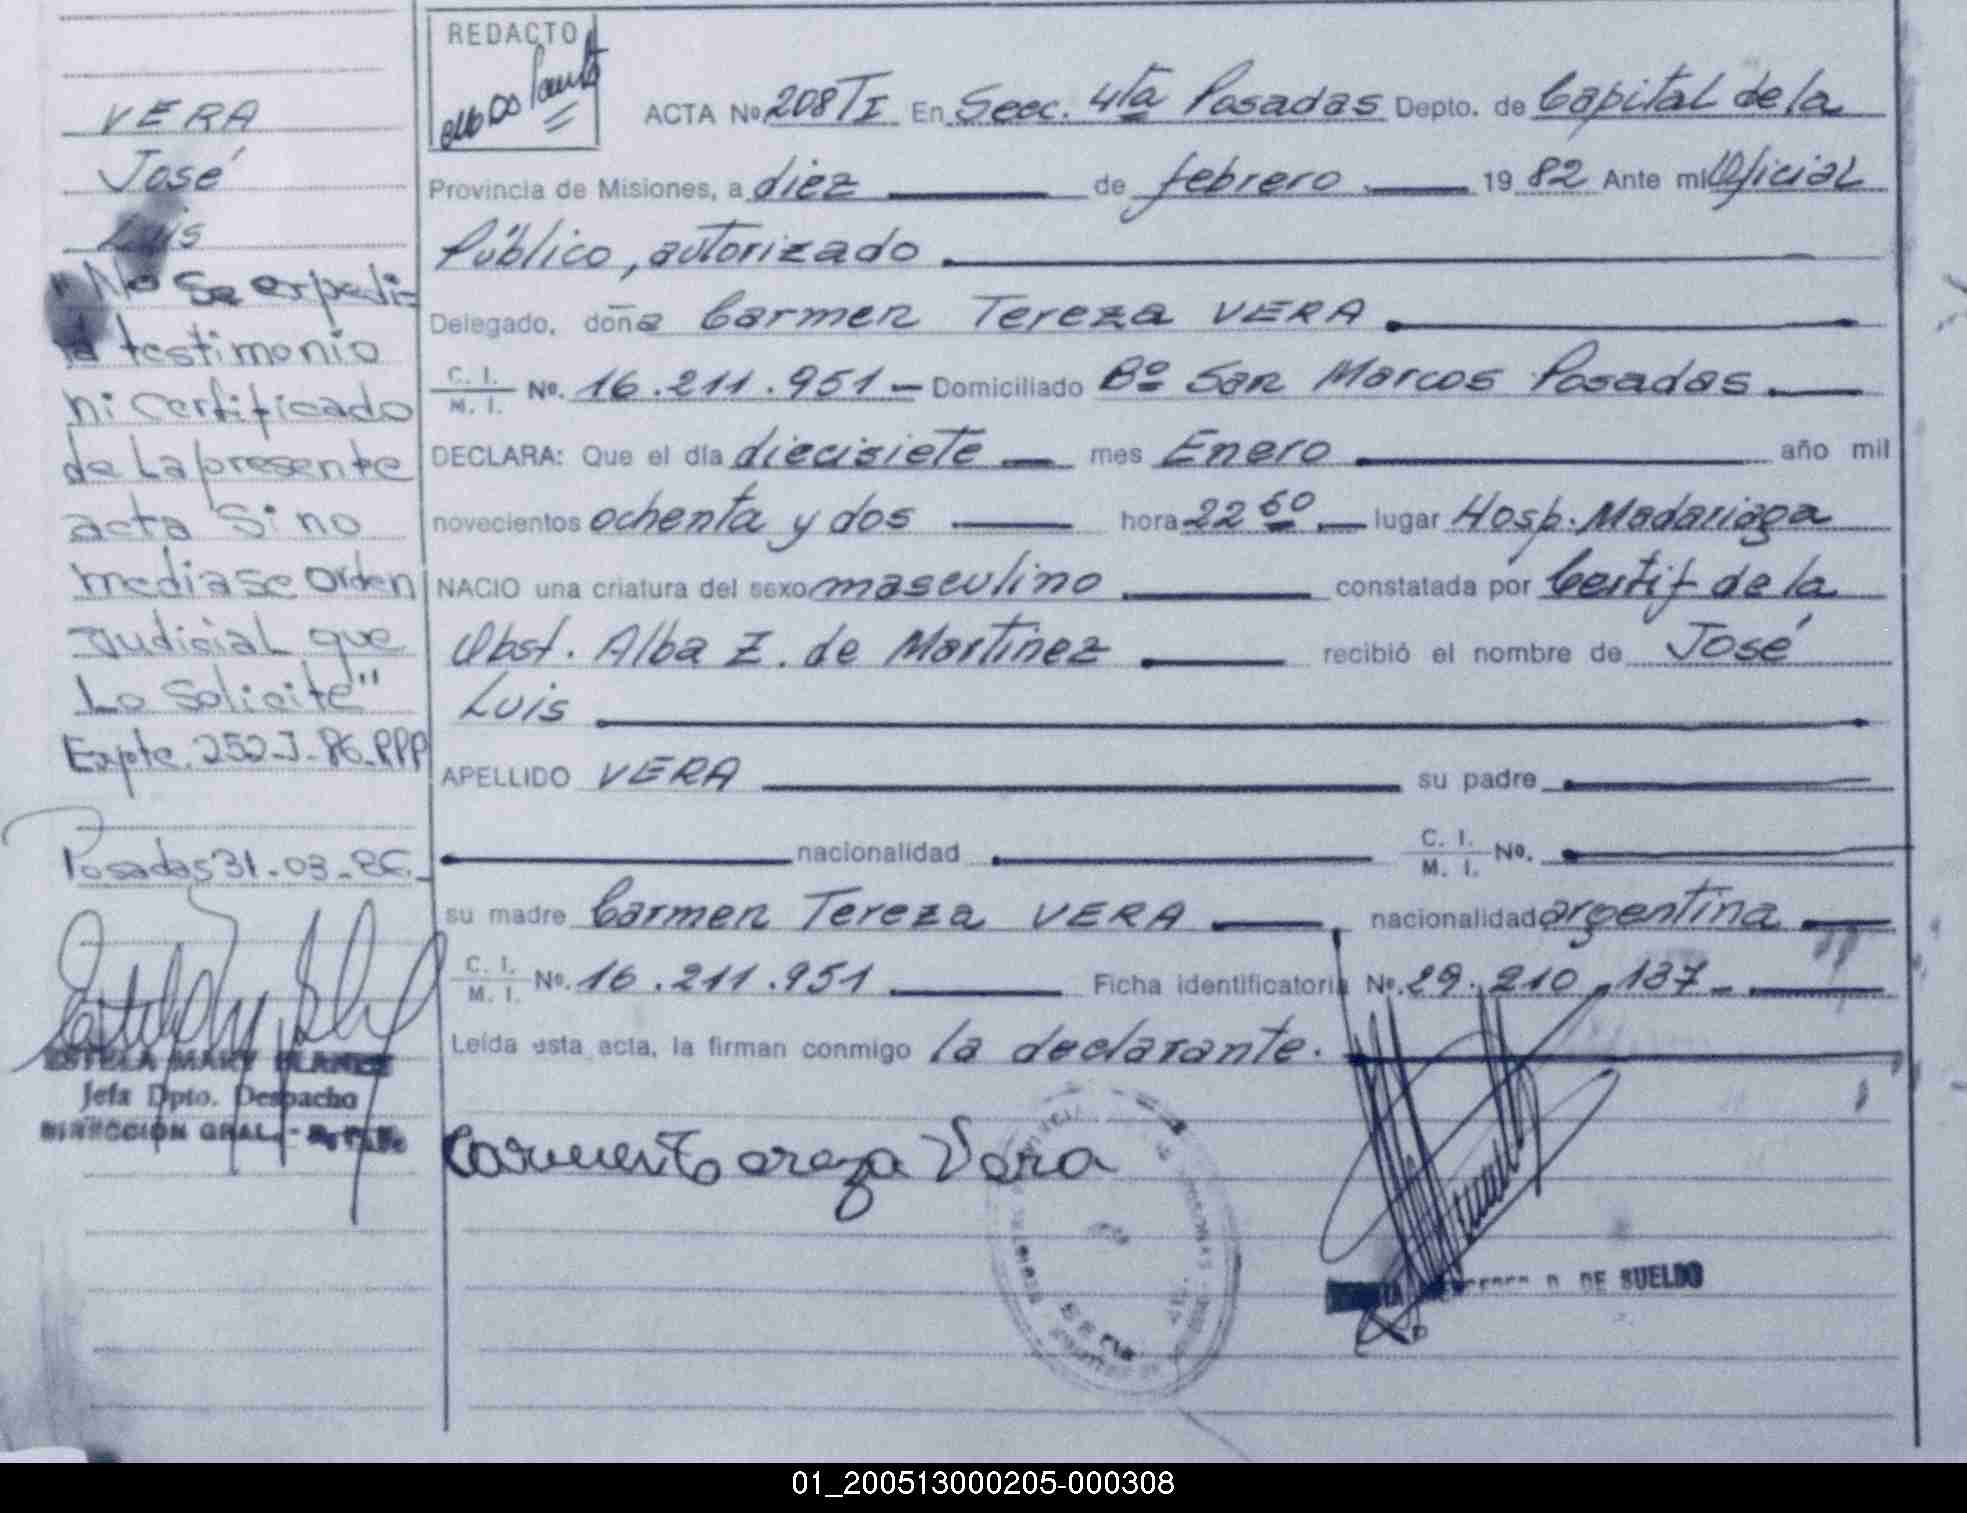 VERA
José
Luis
"No se expedi-
rá testimonio
ni certificado
de La presente
acta Si no
mediase Orden
Judicial que
Lo Solicite"
Expte. 252-J-86-RPP
Posadas 31-03-86.-
ESTELA MARY BLANCO
Jefa Dpto. Despacho
DIRECCION GRAL. - R. P. P.
REDACTO
ACTA No 208 TI En Secc. 4ta Posadas Depto. de Capital de la
Provincia de Misiones, a diez de febrero 19 82 Ante mi Oficial
Público, autorizado
Delegado, doña Carmen Tereza VERA
C. I. M. I. No. 16.211.951 - Domiciliado Bº San Marcos Posadas.
DECLARA: Que el día diecisiete mes Enero año mil
novecientos ochenta y dos hora 22 50 lugar Hosp. Madariaga
NACIO una criatura del sexo masculino constatada por Certif de la
Obst. Alba Z. de Martinez recibió el nombre de José
Luis
APELLIDO VERA su padre
nacionalidad C. I. M. I. No.
su madre Carmen Tereza VERA nacionalidad argentina
C. I. M. I. No. 16.211.951 Ficha identificatoria No. 29.210.137 -
Leída esta acta, la firman conmigo la declarante.
Carmen Tereza Vera
D. DE SUELDO
01_200513000205-000308